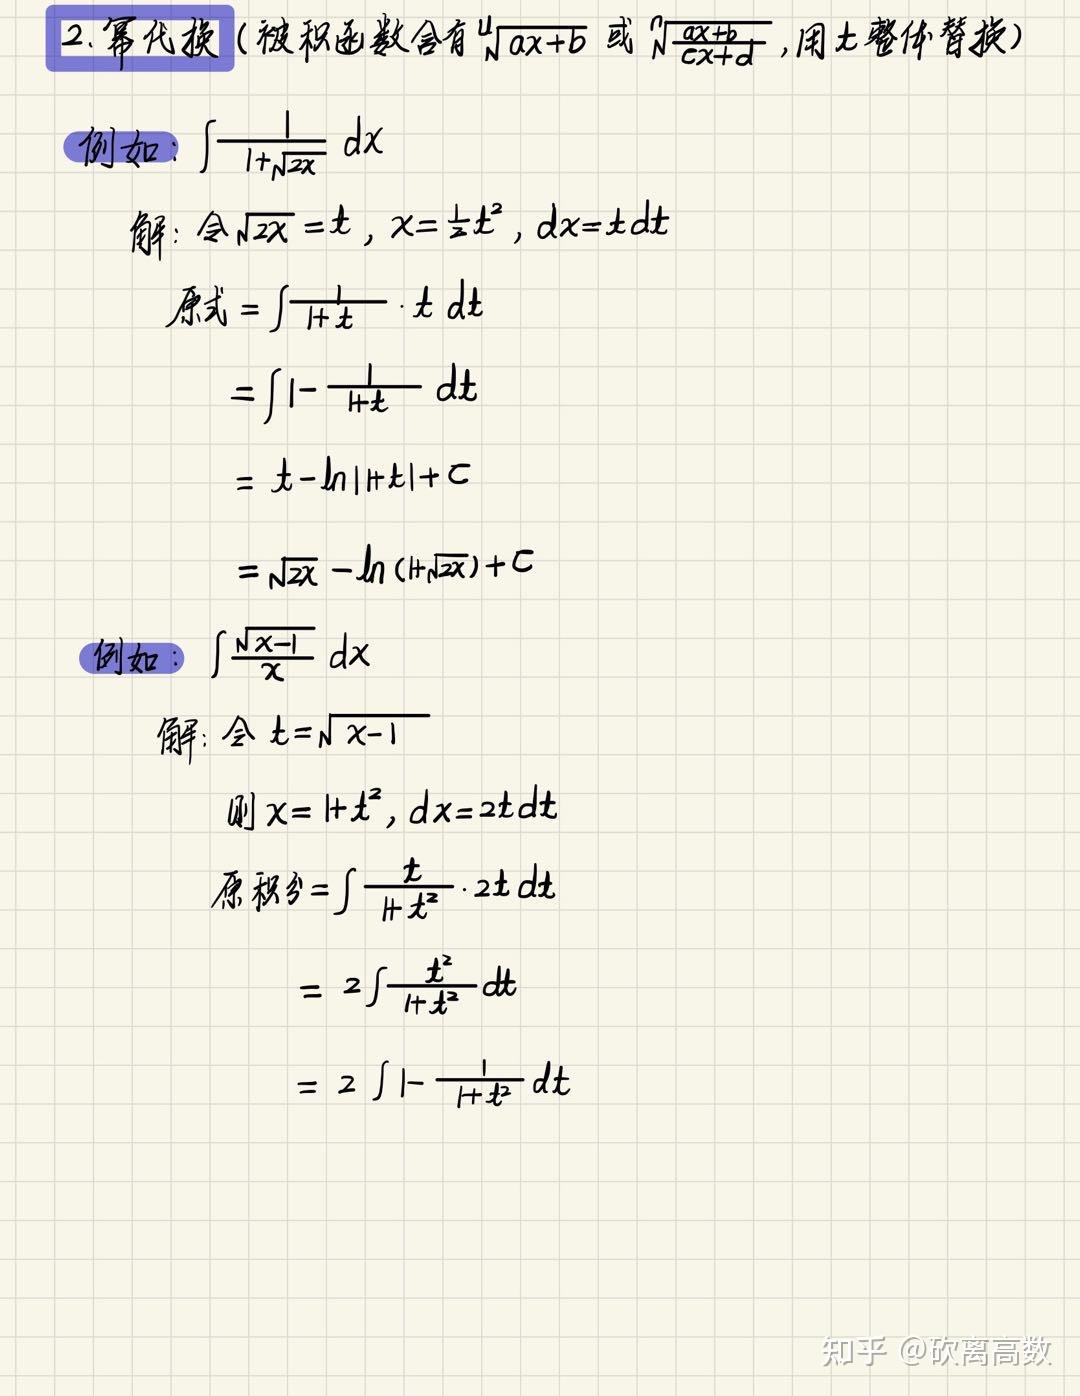 2.幂代换(被积函数含有ⁿ√(ax+b) 或 ⁿ√((ax+b)/(cx+d)),用t整体替换)
例如: ∫ 1/(1+√(2x)) dx
解: 令√(2x) = t, x = ½t², dx = t dt
原式 = ∫ 1/(1+t) · t dt
= ∫ 1 - 1/(1+t) dt
= t - ln|1+t| + C
= √(2x) - ln(1+√(2x)) + C
例如: ∫ √(x-1)/x dx
解: 令 t = √(x-1)
则 x = 1+t², dx = 2t dt
原积分 = ∫ t/(1+t²) · 2t dt
= 2∫ t²/(1+t²) dt
= 2 ∫ 1 - 1/(1+t²) dt
知乎 @砍离高数